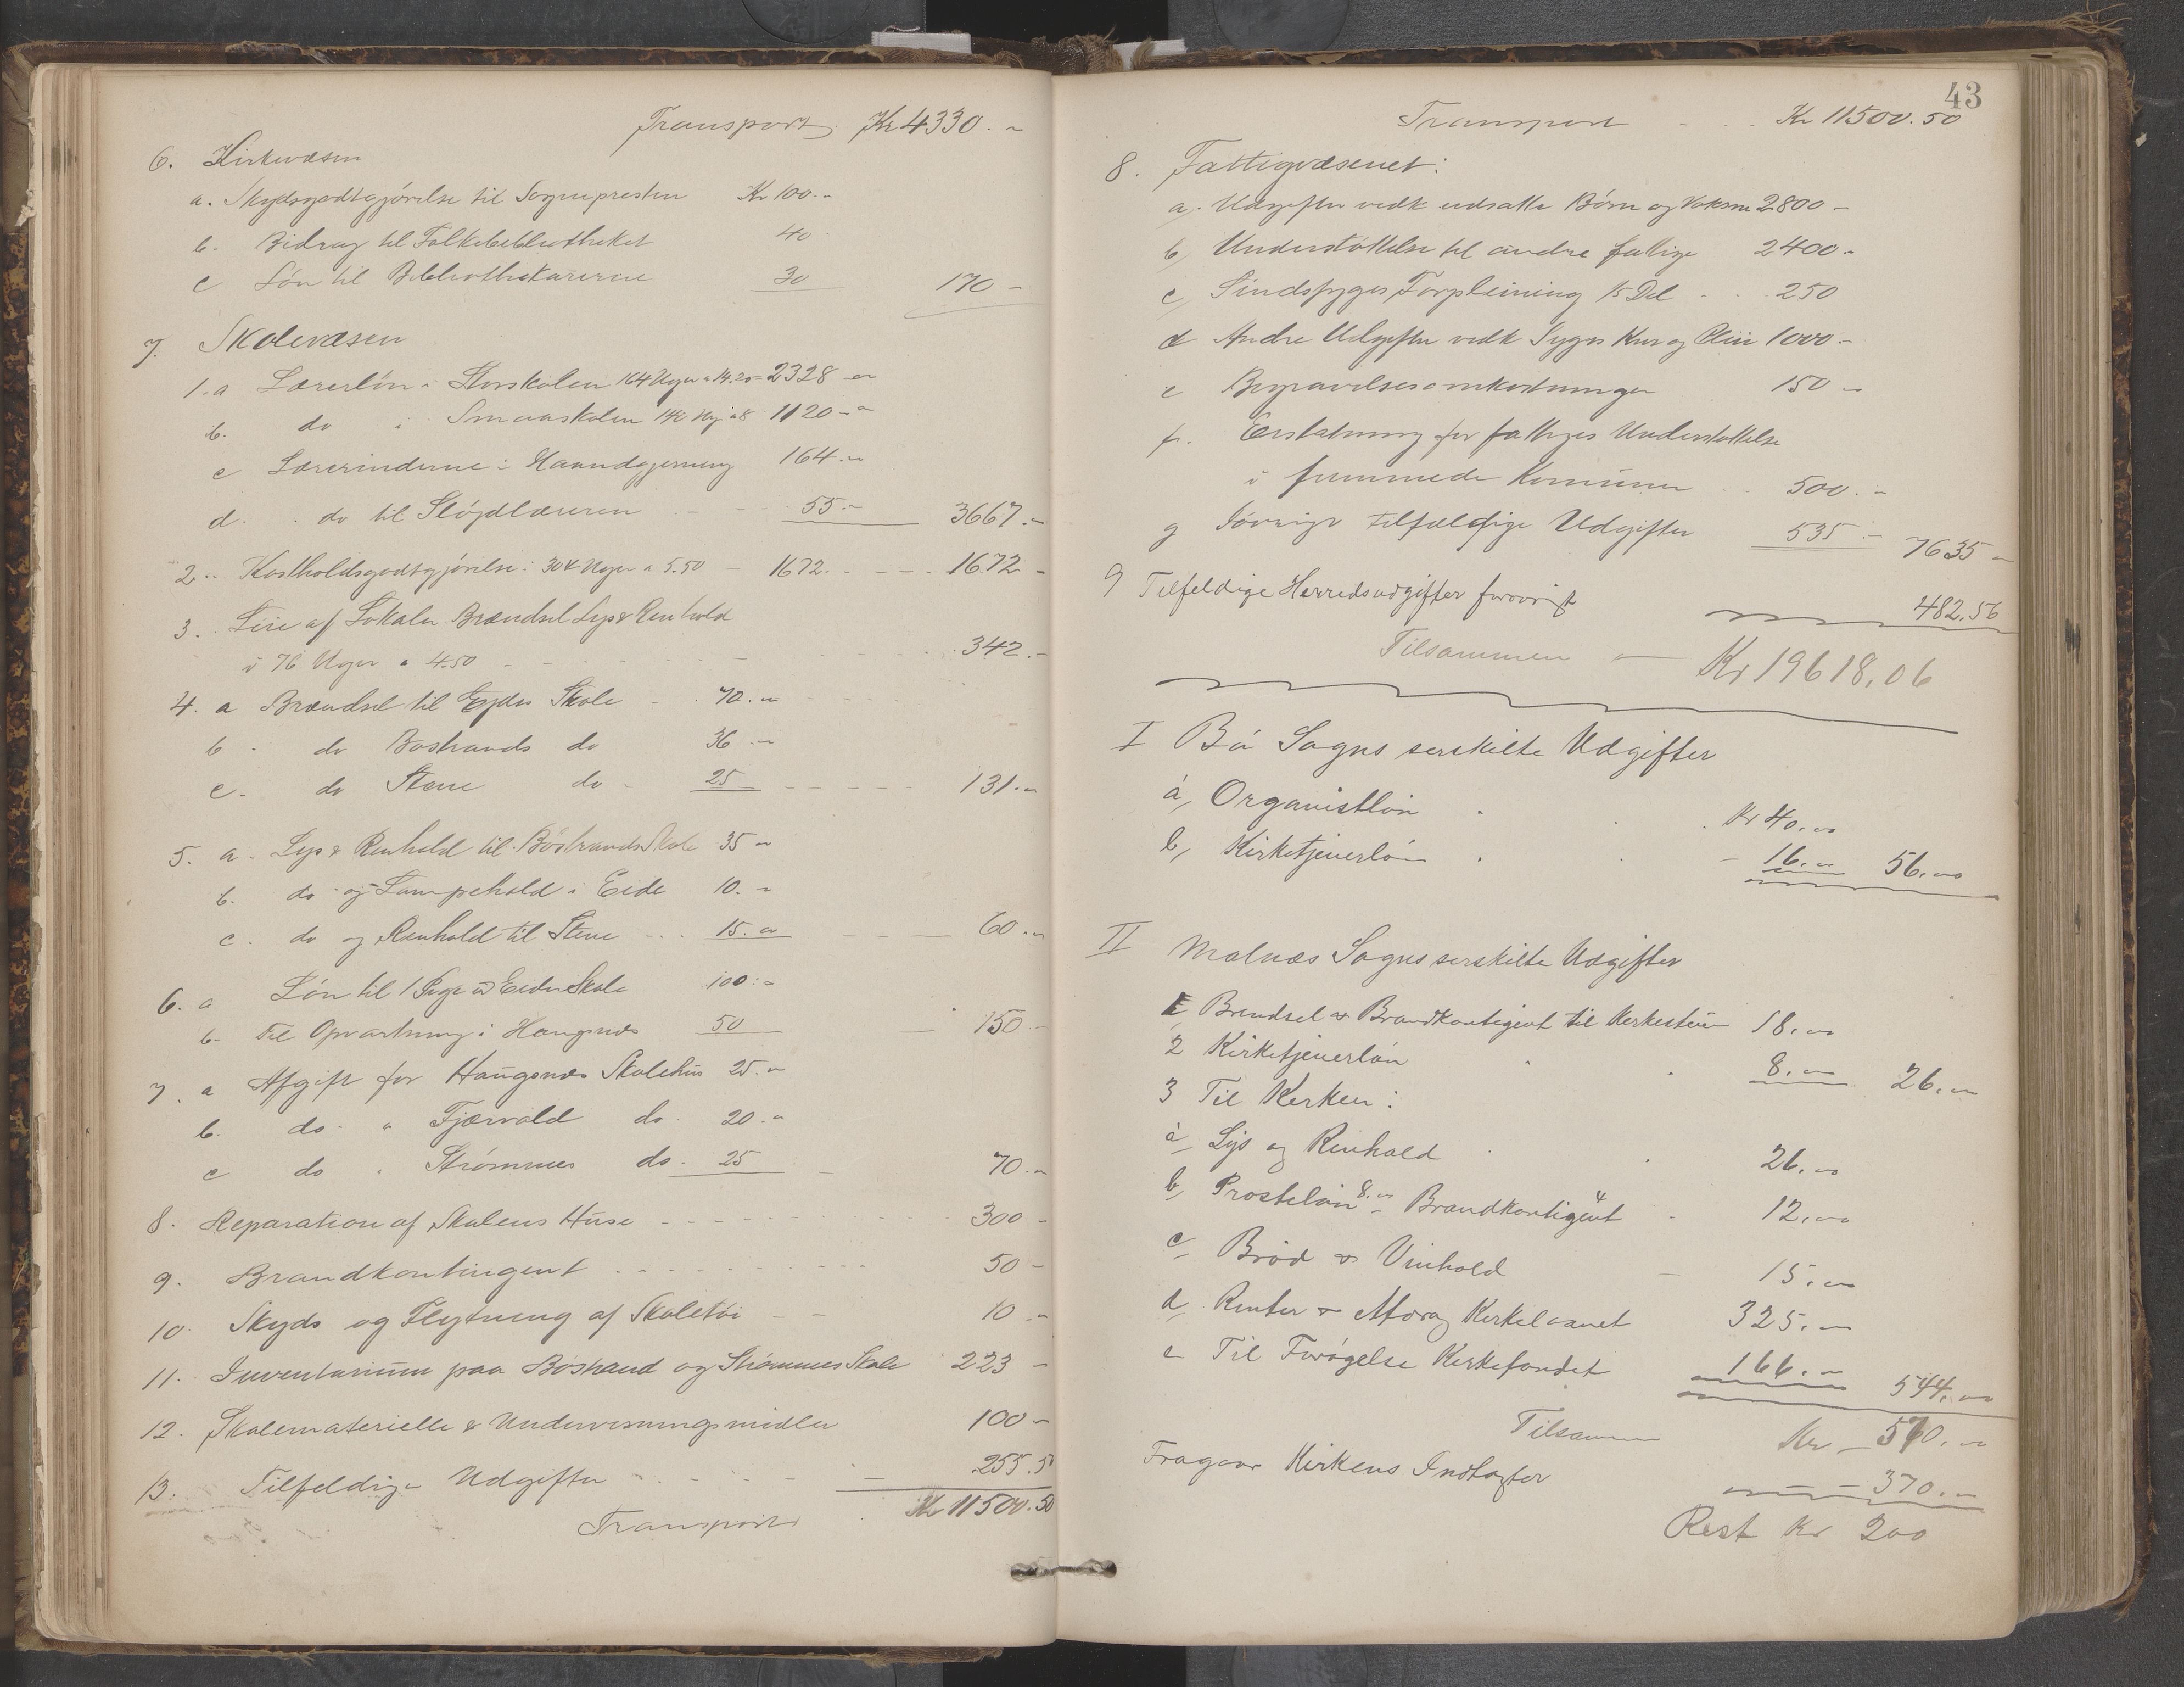 Transport Kr 4330.-
6. Kirkevæsen
a. Skydsgodtgjörelse til Sognepresten Kr 100.-
b. Bidrag til Folkebibliotheket 40
c Løn til Bibliothekarerne 30 170 -
7. Skolevæsen
1. a Lærerløn i Storskolen 164 Uger a 14.20 = 2328 -
b. do i Smaaskolen 140 Ug a 8 1120 -
c Lærerinderne i Haandgjerning 164.-
d. do til Slöjdlæreren 55.- 3667.-
2. Kostholdsgodtgjörelse i 304 Uger a 5.50 - 1672. - 1672 -
3. Leie af Lokaler Brændsel Lys & Renhold
i 76 Uger a 4.50 342.-
4. a Brændsel til Ejdes Skole 70.-
b do Bostrands do 36 -
c. do Stene do 25 131.-
5. a. Lys & Renhold til Böstrands Skole 35 -
b. do og Lampehold i Eide 10. -
c. do og Renhold til Stene 15.- 60.-
6. a Løn til 1 Pige v Eide Skole 100.-
b Til Opvartning i Haugsnes 50 150 -
7. a Afgift for Haugsnes Skolehus 25.-
b. do " Fjærvald do 20.-
c do " Strømmes do. 25 70.-
8. Reparation af Skolens Huse 300 -
9. Brandkontingent 50 -
10. Skyds og Flytning af Skoletøi 10.-
11. Inventarium paa Böstrand og Strømmes Skole 223 -
12. Skolemateriell & Undervisningsmidler 100 -
13. Tilfeldige Udgifter 255.5
Transport Kr 11500.50
43
Transport Kr 11500.50
8. Fattigvæsenet:
a. Udgifter vedk udsatte Börn og Voksne 2800 -
b, Understöttelse til andre fattige 2400.-
c, Sindssyges Forpleining 1/5 Del 250
d Andre Udgifter vedk Syges Kur og Pleie 1000 -
e Begravelsesomkostninger 150 -
f. Erstatning for fattiges Understøttelse
i fremmede Komuner 500.-
g Iøvrigt tilfældige Udgifter 535 - 7635 -
9 Tilfeldige Herredsudgifter forøvrigt 482,56
Tilsammen - Kr 19618,06
I Bö Sogns serskilte Udgifter
a, Organistløn Kr 40.00
b, Kirketjenerløn - 16.- 56.00
II Malnæs Sogns serskilte Udgifter
1, Brendsel & Brandkontigent til Kirkestuen 18.00
2 Kirketjenerløn 8.- 26.-
3 Til Kirken:
a, Lys og Renhold 26.00
b, Prosteløn 8.- - Brandkontigent 4 12.00
c, Bröd & Vinhold - 15.00
d, Renter & Afdrag Kirkelaanet 325.-
e Til Forøgelse Kirkefondet 166.- 544.00
Tilsammen Kr - 570.-
Fragaar Kirkens Indtægter - 370.-
Rest Kr 200